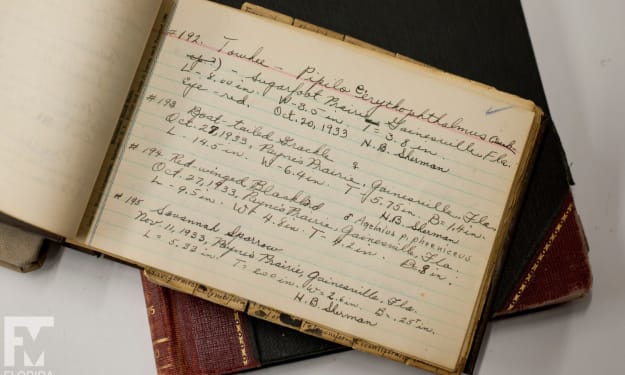 #192. Towhee - Pipilo e. erythophthalmus
sp?) - Sugarfoot Prairie, Gainesville, Fla.
L - 8.00 in. W - 3.5 in. T = 3.8 in.
Eye - red. Oct. 20, 1933 H. B. Sherman
#193 Boat-tailed Grackle
Oct. 27, 1933, Payne's Prairie, Gainesville, Fla.
L - 14.5 in. W - 6.4 in. T 5.75 in. B = 1.4 in.
H. B. Sherman
#194 Red-winged Blackbd ♂ Agelaius p. phoeniceus
Oct. 27, 1933, Payne's Prairie, Gainesville, Fla.
L - 9.5 in. W 4.8 in. T- 4.2 in. B .8 in.
#195 Savannah Sparrow
Nov. 11, 1933, Payne's Prairie, Gainesville, Fla.
L = 5.32 in. T = 2.00 in. W = 2.6 in. B = .25 in.
H. B. Sherman
FM
FLORIDA